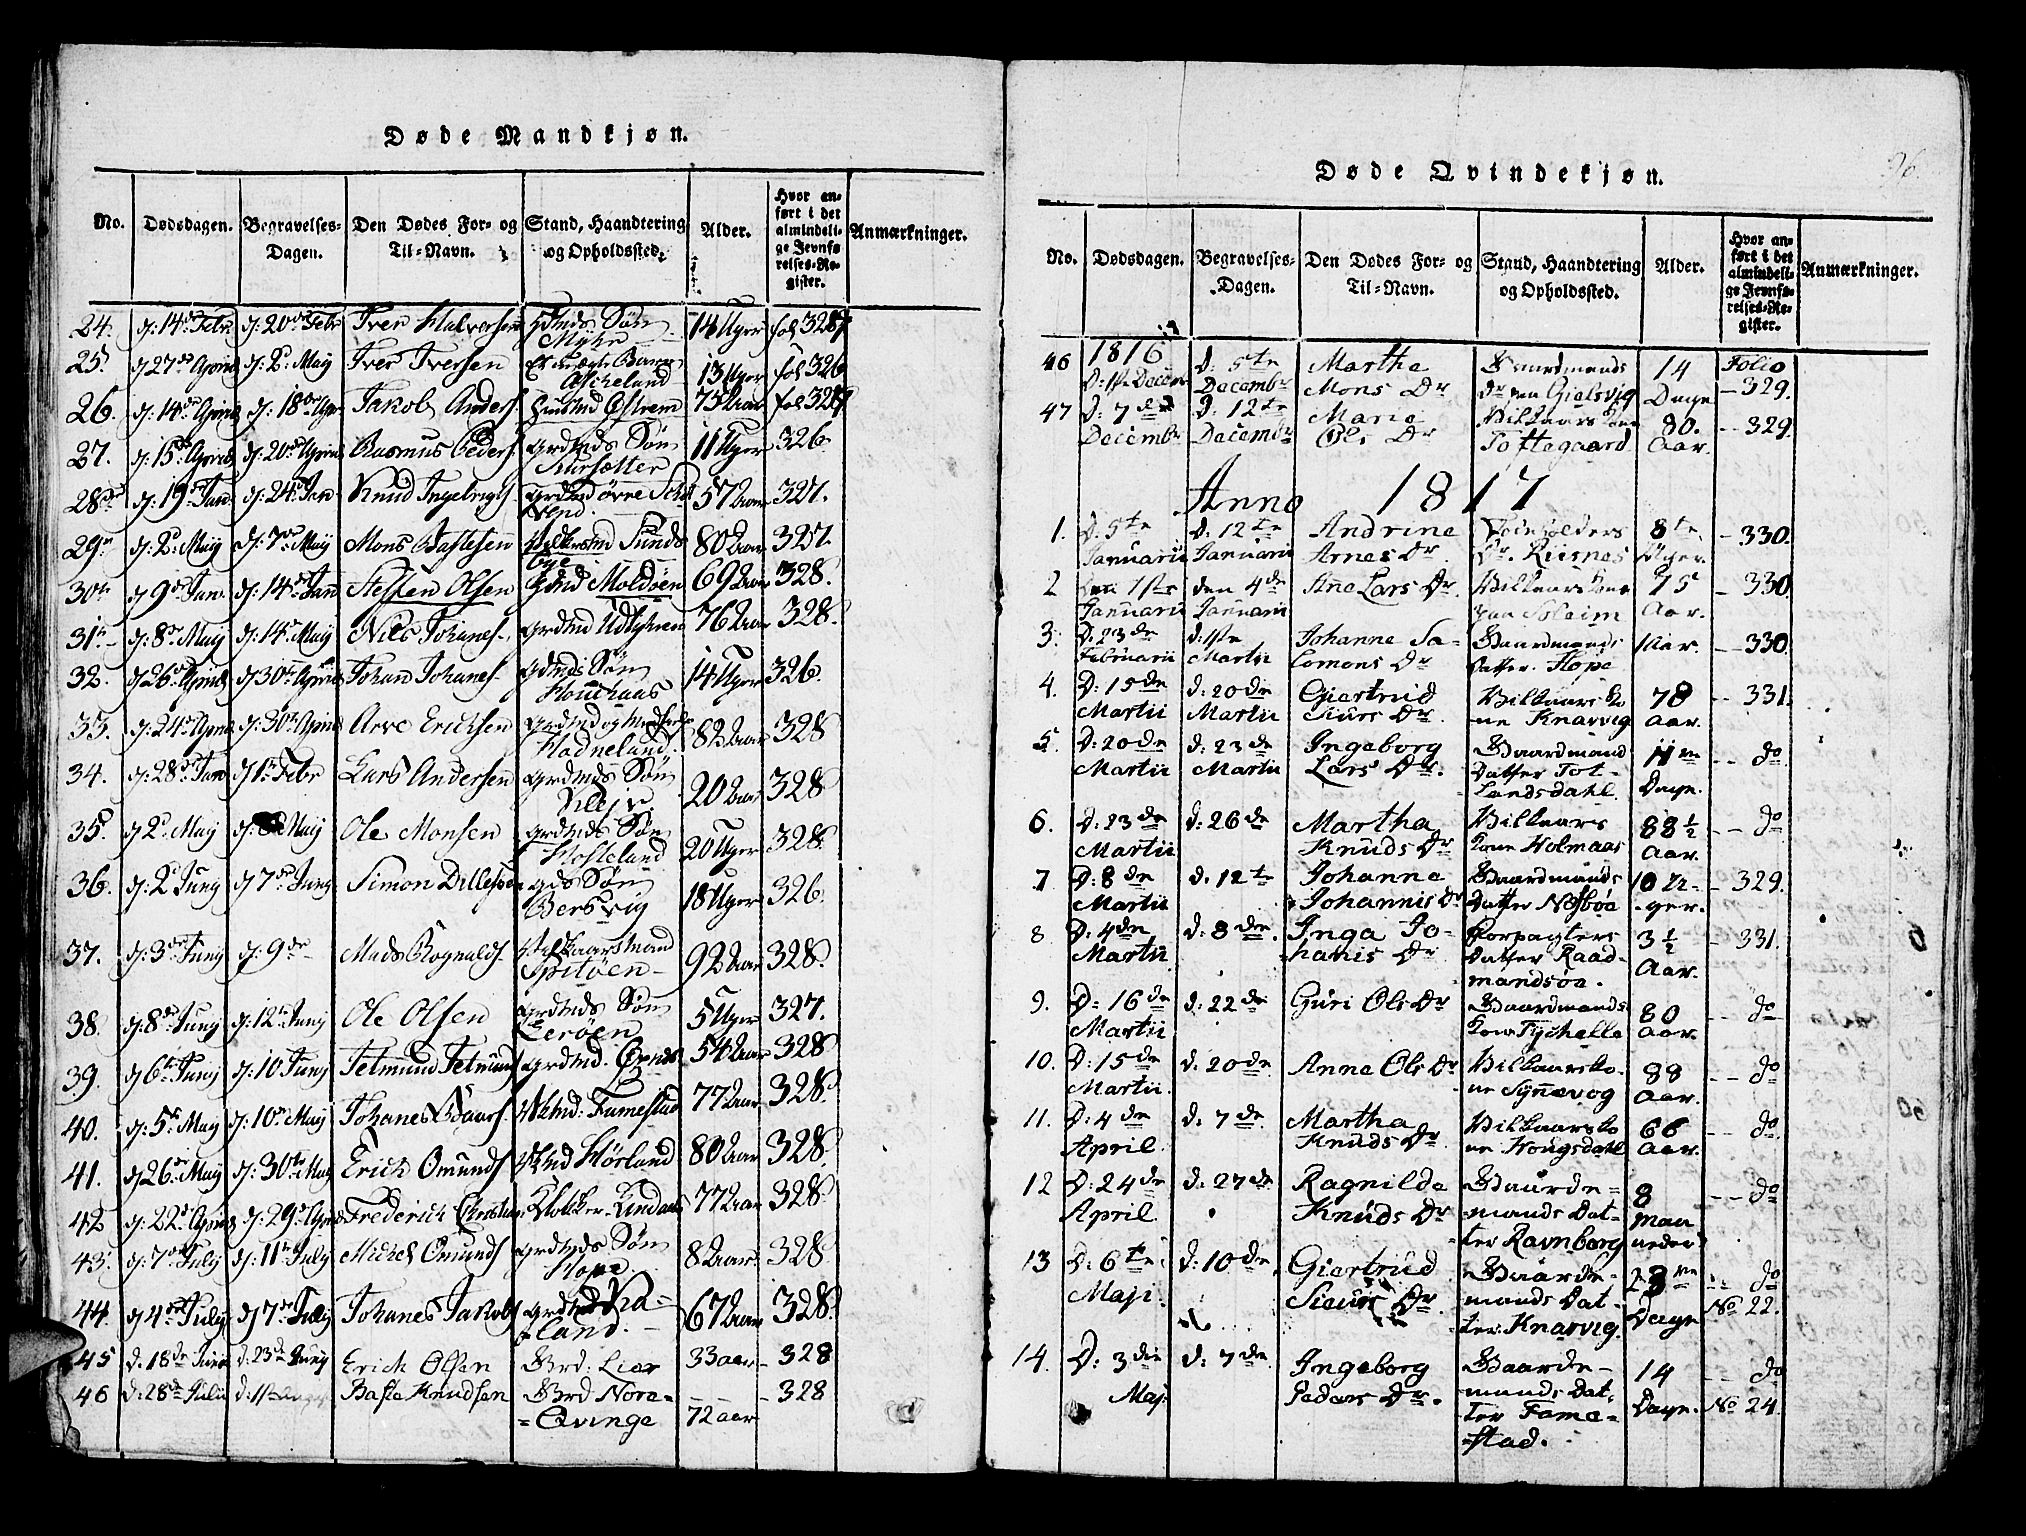 Døde Mandkjøn.
No. Dødsdagen. Begravelses-Dagen. Den Dødes For- og Til-Navn. Stand, Haandtering og Opholdssted. Alder. Hvor anført i det almindelige Jevnførelses-Register. Anmærkninger.
24. d: 14de Febr d: 20de Febr Iver Halversen Søn Myhre 14 Uger fol 328
25. d 27de April d: 2. May Iver Iversen Askeland 13 Uger fol 326
26. d: 14de April d: 18de Apr Jakob Anders. Husmd Østrem 75 Aar fol 328
27. d: 15. April d: 20de April Rasmus Peders. Grdmds Søn 11 Uger 326.
28 d: 19. Jan d: 24. Jan Knud Ingebrigts. Grdmd øvre 57 Aar 327.
29 d: 2. May d: 7de May Mons Bastesen Sundsbye 80 Aar 327.
30 d 9de Jan. d: 14de Jan Steffen Olsen Moldøen 69 Aar 328.
31 d: 8. May d: 14. May Nils Johanes. Grdmd 76 Aar 328.
32. d 26. April d 30te April Johan Johanes. Grdmds Søn 14 Uger 326.
33. d: 24. April d: 30te April Arve Ericksen Grdmd og Hadneland 82 Aar 328
34. d: 28. Jan d 1te Febr Lars Andersen Grdmds Søn 20 Aar 328
35. d 2. May d: May Ole Monsen Grdmds Søn Hosteland 20 Uger 328.
36. d: 2. Juny d 7de Juny Simon Dillefsen Søn Bersvig 18 Uger 326.
37. d: 3de Juny d: 9de Mads Rognalds. Vilkaarsmand Spitøen 92 Aar 328.
38. d: 8de Juny d: 12te Juny Ole Olsen Grdmds Søn Lerøen 5 Uger 327.
39. d 6te Juny d: 10 Juny Tetmund Tetmunds. Grdmd. 54 Aar 328
40. d: 5te May d: 10de May Johanes Baars. Famestad 77 Aar 328.
41. d 26de May d: 30te May Erick Omunds. Hørland 80 Aar 328.
42 d: 22. April d: 29de April Frederich Christian Klokker Lindaas 77 Aar 328.
43. d: 7de July d: 11te July Michel Omunds. Grdmds Søn Hope 8 Aar 328.
44. d 4de July d 7de July Johanes Jakobs. Grdmd 67 Aar 328.
45 d. 18de Juni d: 23de Juny Erich Olsen Brd. Lier 33 aar 328
46 d: 28de Julii Baste Knudsen Brd Nore=
=Qvinge 72 aar 328
Døde Qvindekjøn.
96.
No. Dødsdagen. Begravelses-Dagen. Den Dødes For- og Til-Navn. Stand, Haandtering og Opholdssted. Alder. Hvor anført i det almindelige Jevnførelses-Register. Anmærkninger.
1816
46 D: 1ste Decem d. 5te Decembr Martha Mons Dr Baardmands Dr 14 Dage Folio 329.
47 D: 7de Decembr D: 12te Decembr Marie Ols Dr Vilkaars Kone Toftegaard 80. Aar. 329.
Anno 1817
1. D. 5te Januarii D. 12te Januarii Andrine Arnes Dr. Dr. Riisnes 8te Uger. 330.
2 den 1ste Januarii den 4de Januarii Ane Lars Dr. Vilkaars Kone paa Soleim 75 Aar. 330.
3. D: 23de Februarii d: 1ste Martii Johanne Salomons Dr Baardmands Datter. Hope 1 Aar. 330
4. D: 15de Martii d: 20de Martii Giertrud Siurs Dr. Vilkaarskone Knarvig 78 Aar. 331.
5. D: 20de Martii d: 23de Martii Ingeborg Lars Dr. Baardmand Datter Totlandsdahl. 11ve Dage. do
6. D: 23de Martii d: 26de Martha Knuds Dr Vilkaars Kone Holmaas 88½ Aar. do
7 D: 8de Martii d. 12te Johanne Johannis Dr Baardmands Datter Nøsbøe 10 Uger. 329.
8. D: 4de Martii d: 8de Inga Johanis Dr Forpagters Datter Raadmandsøe. 3½ Aar. 331.
9. D: 16de Martii d: 22de Guri Ols Dr Baardmands Kone Tychelle 80 Aar. do
10. D: 15de Martii d. 20de Anne Ols Dr Vilkaarskone Synnevog 88 Aar. do
11. D: 4de April. d. 7de Martha Knuds Dr Vilkaarskone Hougsdahl 66 Aar. do
12 D: 24de April. d. 27de Ragnilde Knuds Dr Baardemands Datter Ravnborg 8 Maaneder do
13 D: 6te Maji. d: 10de Giertrud Siurs Dr Baardemands Datter. Knarvig. Dage do No 22.
14. D: 3die Maj. d: 7de Ingeborg Peders Dr. Baardemands Datter Famestad. 14 Dage. do No 24.